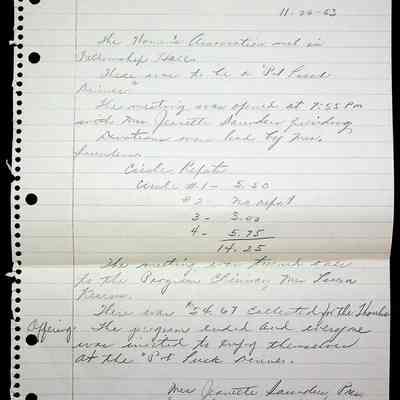 11-26-63
The Women's Association met in
Fellowship Hall.
There was to be a "Pot Luck
Dinner."
The meeting was opened at 7:55 Pm
with Mrs Jeanette Saunders presiding,
Devotions was lead by Mrs.
Saunders.
Circles Report
Circle #1 - 5.50
#2 - No report
3 - 3.00
4 - 5.75
14.25
The meeting was turned over
to the Program Chairman, Mrs
There was $24.67 Collected for the Thanks
Offering. The program ended and everyone
was invited to enjoy themselves
at the "Pot Luck Dinner.
Mrs Jeanette Saunders, Pres